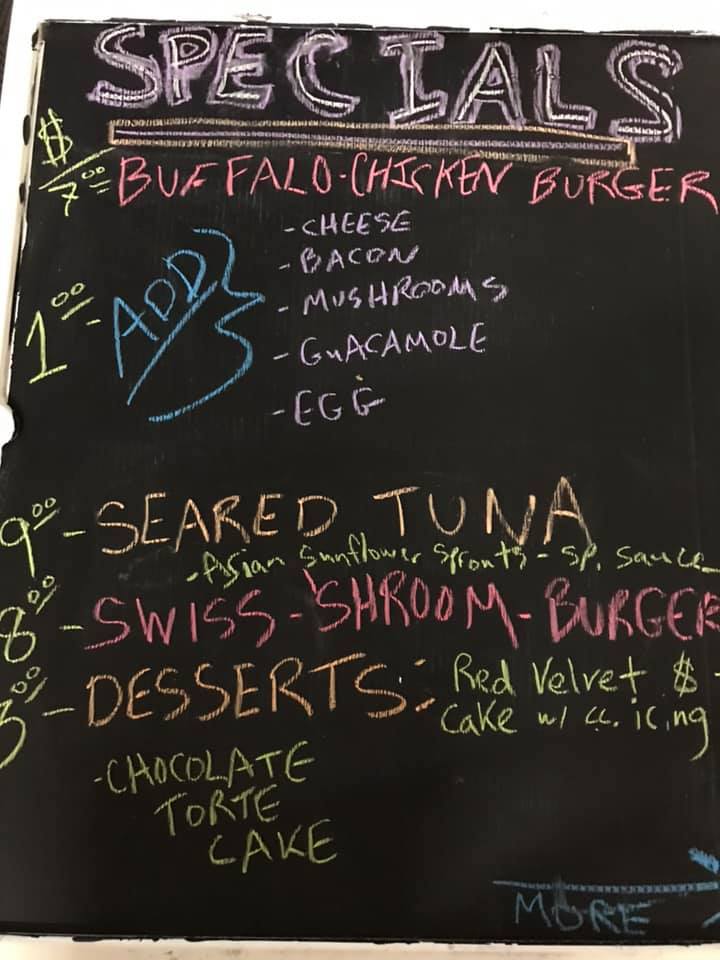 SPECIALS
$
7.00 BUFFALO-CHICKEN BURGER
- CHEESE
- BACON
1.00 - ADD - MUSHROOMS
- GUACAMOLE
- EGG
9.00 - SEARED TUNA
- Asian Sunflower Sprouts - Sp. Sauce
8.00 - SWISS-'SHROOM-BURGER
- DESSERTS: Red Velvet $
Cake w/ cc. icing
- CHOCOLATE
TORTE
CAKE
MORE